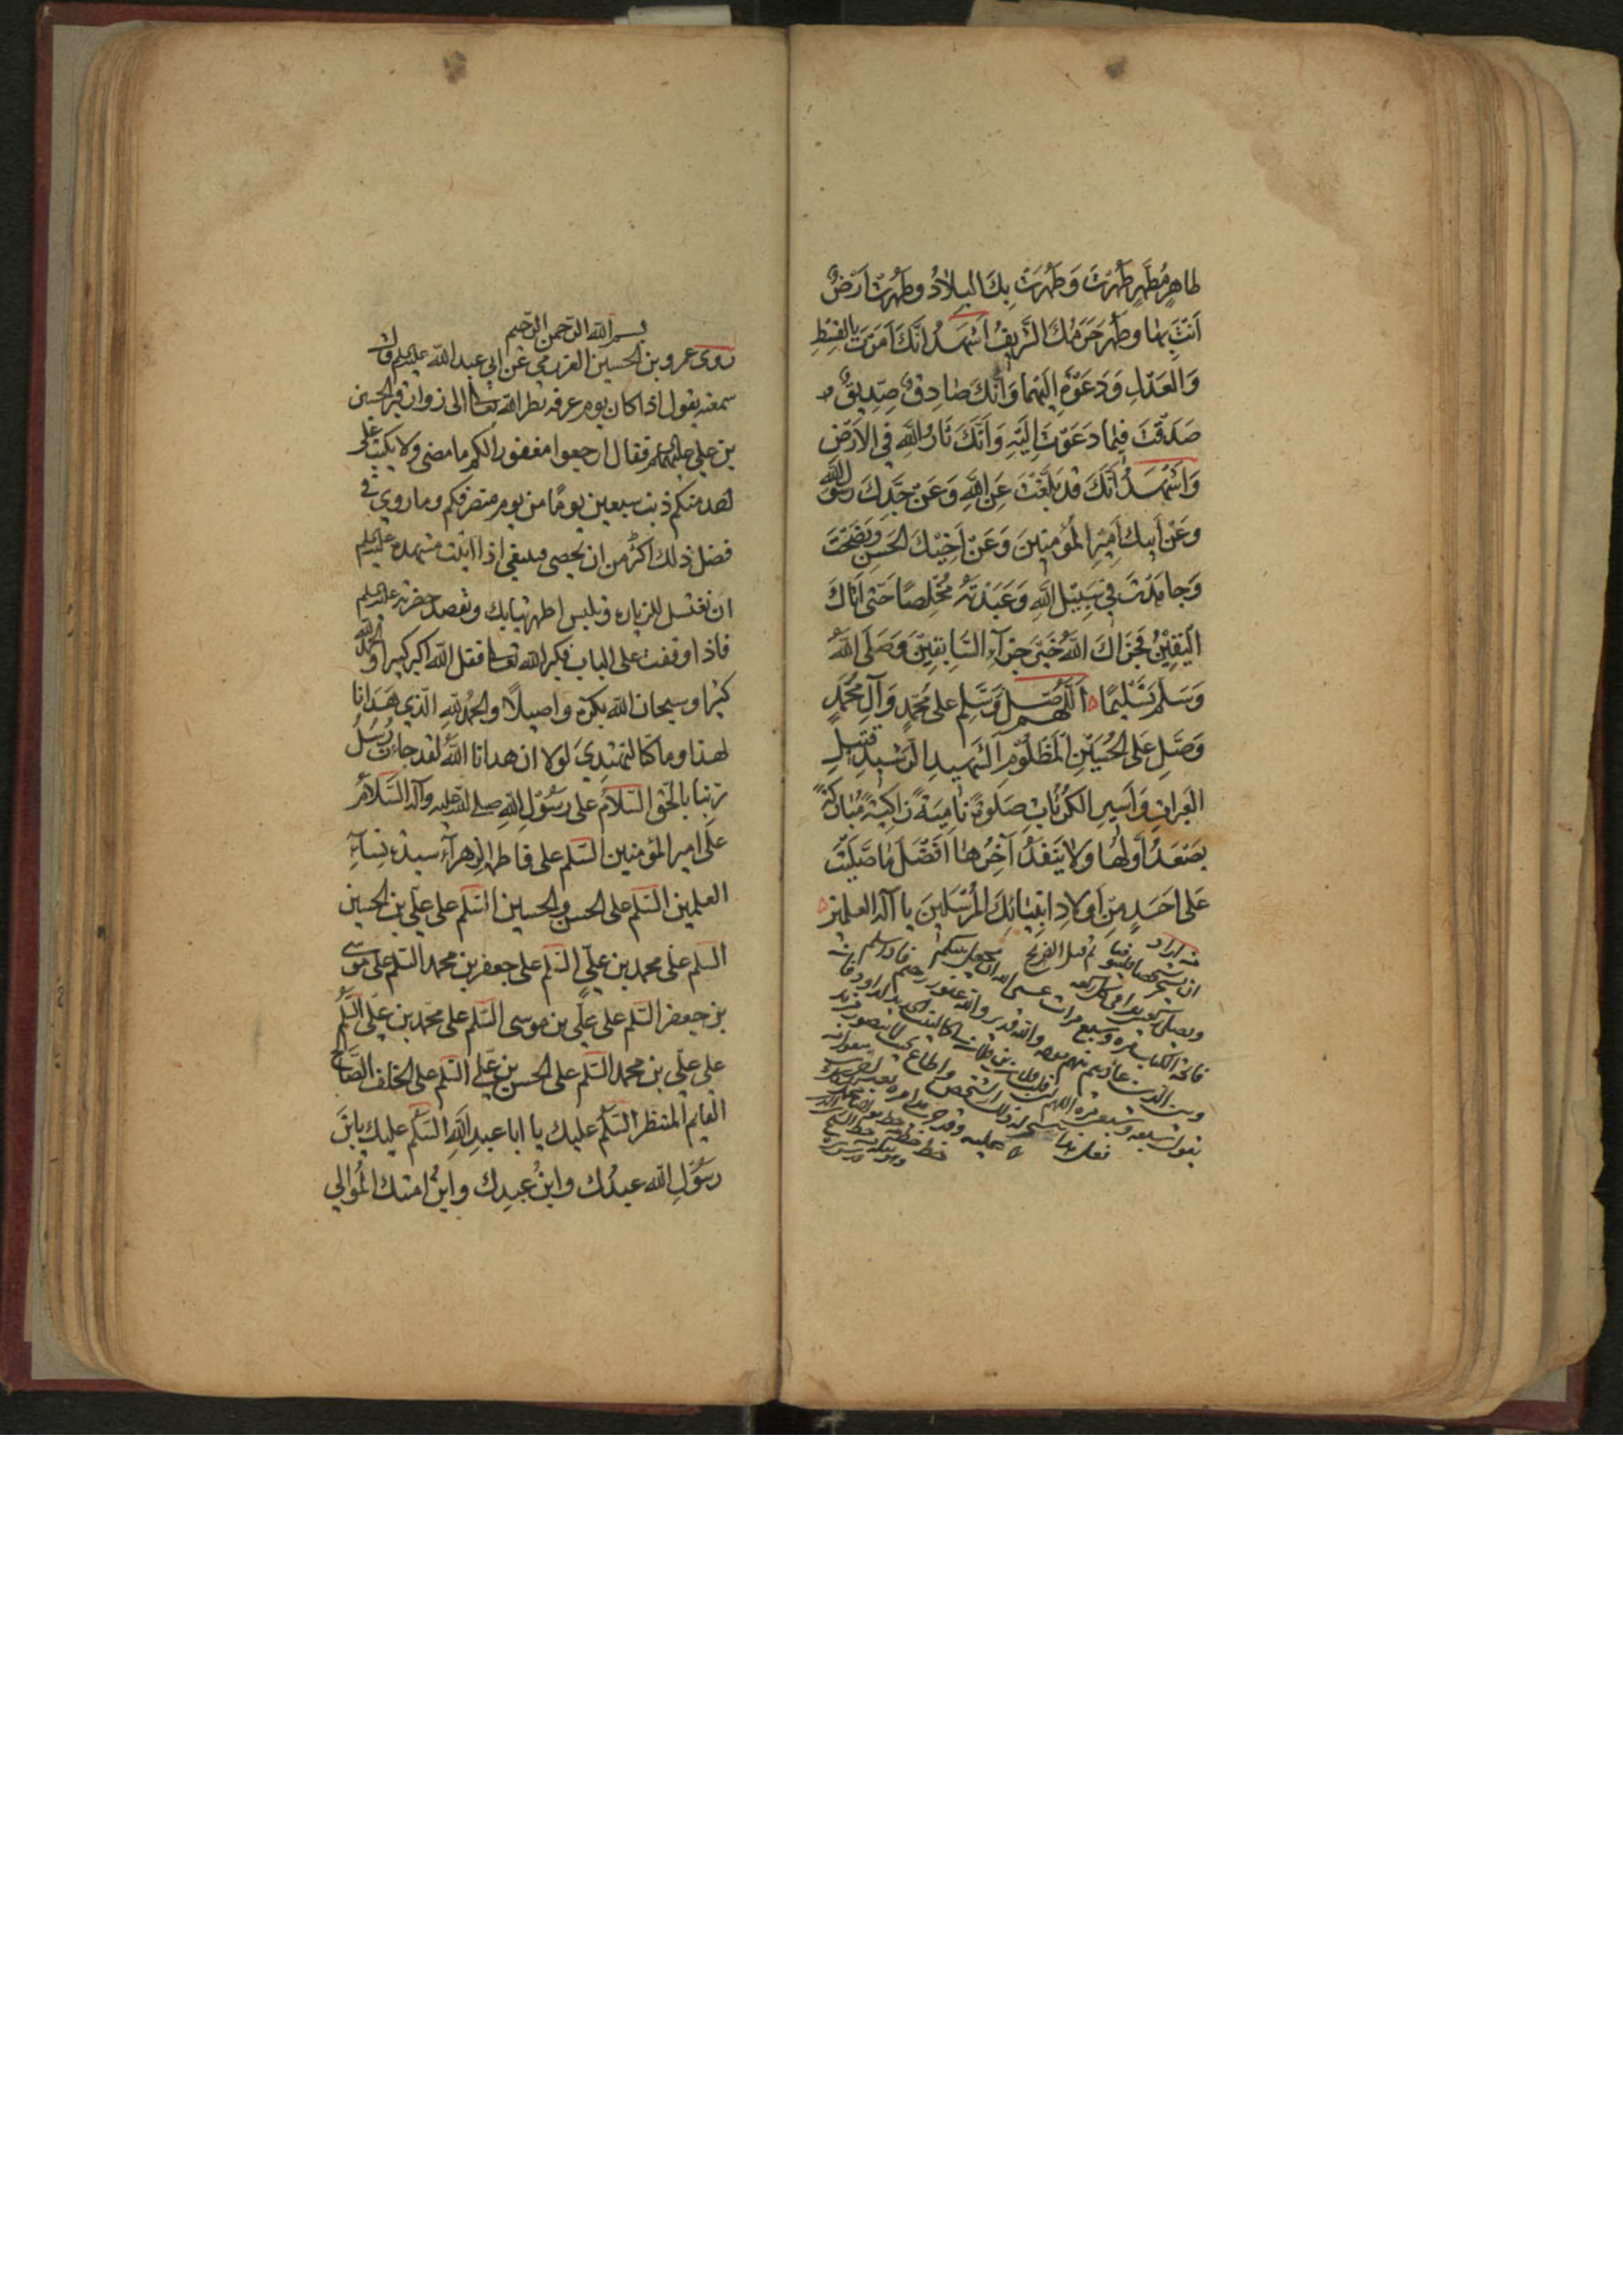 طاهِرٍ مُطَهَّرٍ طَهُرْتَ وَطَهُرَتْ بِكَ البِلادُ وَطَهُرَتْ اَرْضٌ
اَنْتَ بِها وَطَهُرَ حَرَمُكَ الشَّرِيفُ اَشْهَدُ اَنَّكَ اَمَرْتَ بِالقِسْطِ
وَالعَدْلِ وَدَعَوْتَ اِلَيْهِما وَاَنَّكَ صادِقٌ صِدِّيقٌ
صَدَقْتَ فِيما دَعَوْتَ اِلَيْهِ وَاَنَّكَ ثارُ اللَّهِ فِي الاَرْضِ
وَاَشْهَدُ اَنَّكَ قَدْ بَلَّغْتَ عَنِ اللَّهِ وَعَنْ جَدِّكَ رَسُولِ اللَّهِ
وَعَنْ اَبِيكَ اَمِيرِ المُؤْمِنِينَ وَعَنْ اَخِيكَ الحَسَنِ وَنَصَحْتَ
وَجاهَدْتَ فِي سَبِيلِ اللَّهِ وَعَبَدْتَهُ مُخْلِصًا حَتّى اَتاكَ
اليَقِينُ فَجَزاكَ اللَّهُ خَيْرَ جَزاءِ السّابِقِينَ وَصَلَّى اللَّهُ
وَسَلَّمَ تَسْلِيمًا اَللّهُمَّ صَلِّ وَسَلِّمْ عَلى مُحَمَّدٍ وَآلِ مُحَمَّدٍ
وَصَلِّ عَلَى الحُسَيْنِ المَظْلُومِ الشَّهِيدِ الرَّشِيدِ قَتِيلِ
العَبَراتِ وَاَسِيرِ الكُرُباتِ صَلوةً نامِيَةً زاكِيَةً مُبارَكَةً
يَصْعَدُ اَوَّلُها وَلا يَنْفَدُ آخِرُها اَفْضَلَ ما صَلَّيْتَ
عَلى اَحَدٍ مِنْ اَوْلادِ اَنْبِيائِكَ المُرْسَلِينَ يا اله العلمين
بسم الله الرحمن الرحيم
روى عمرو بن الحسين العزرمي عن ابي عبد الله عليه السلم قال
سمعته يقول اذا كان يوم عرفه نظر الله تعالى الى زوار قبر الحسين
بن علي عليهما السلم فقال ارجعوا مغفورا لكم ما مضى ولا يكتب على
احد منكم ذنب سبعين يومًا من يوم منصرفكم وما روي في
فضل ذلك اكثر من ان يحصى فينبغي اذا اتيت مشهده عليه السلم
ان تغتسل للزيارة وتلبس اطهر ثيابك وتقصد حضرته عليه السلم
فاذا وقفت على الباب فكبر الله تعالى فقل الله اكبر كبيرا والحمد لله
كثيرا وسبحان الله بكرة واصيلًا والحمد لله الذي هَدَانا
لهذا وما كنا لنهتدي لولا ان هدانا اللهُ لقد جاءت رُسُلُ
ربنا بالحق السّلامُ على رسولِ الله صلى الله عليه وآله السَّلامُ
على امير المؤمنين السّلم على فاطمة الزهرآء سيدة نسآءِ
العلمين السّلم على الحسن والحسين السّلم على علي بن الحسين
السلم على محمد بن علي السّلم على جعفر بن محمد السّلم على موسى
بن جعفر السّلم على علي بن موسى السّلم على محمد بن علي السّلم
على علي بن محمد السّلم على الحسن بن علي السّلم على الخلف الصالح
القايم المنتظر السّلم عليك يا ابا عبد اللهِ السّلم عليك يابن
رسولِ الله عبدُك وابنُ عبدِك وابنُ امتك المُوالي